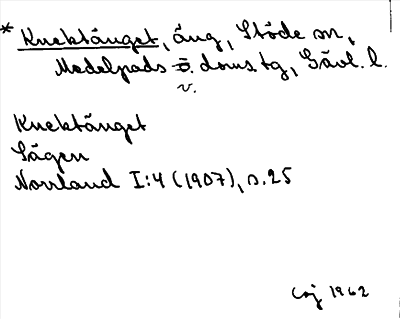 * Knektänget, äng, Stöde sn,
Medelpads ö. doms.tg, Gävl. l.
v.
Knektänget
Sägen
Norrland I:4 (1907), s.25
Coj 1962